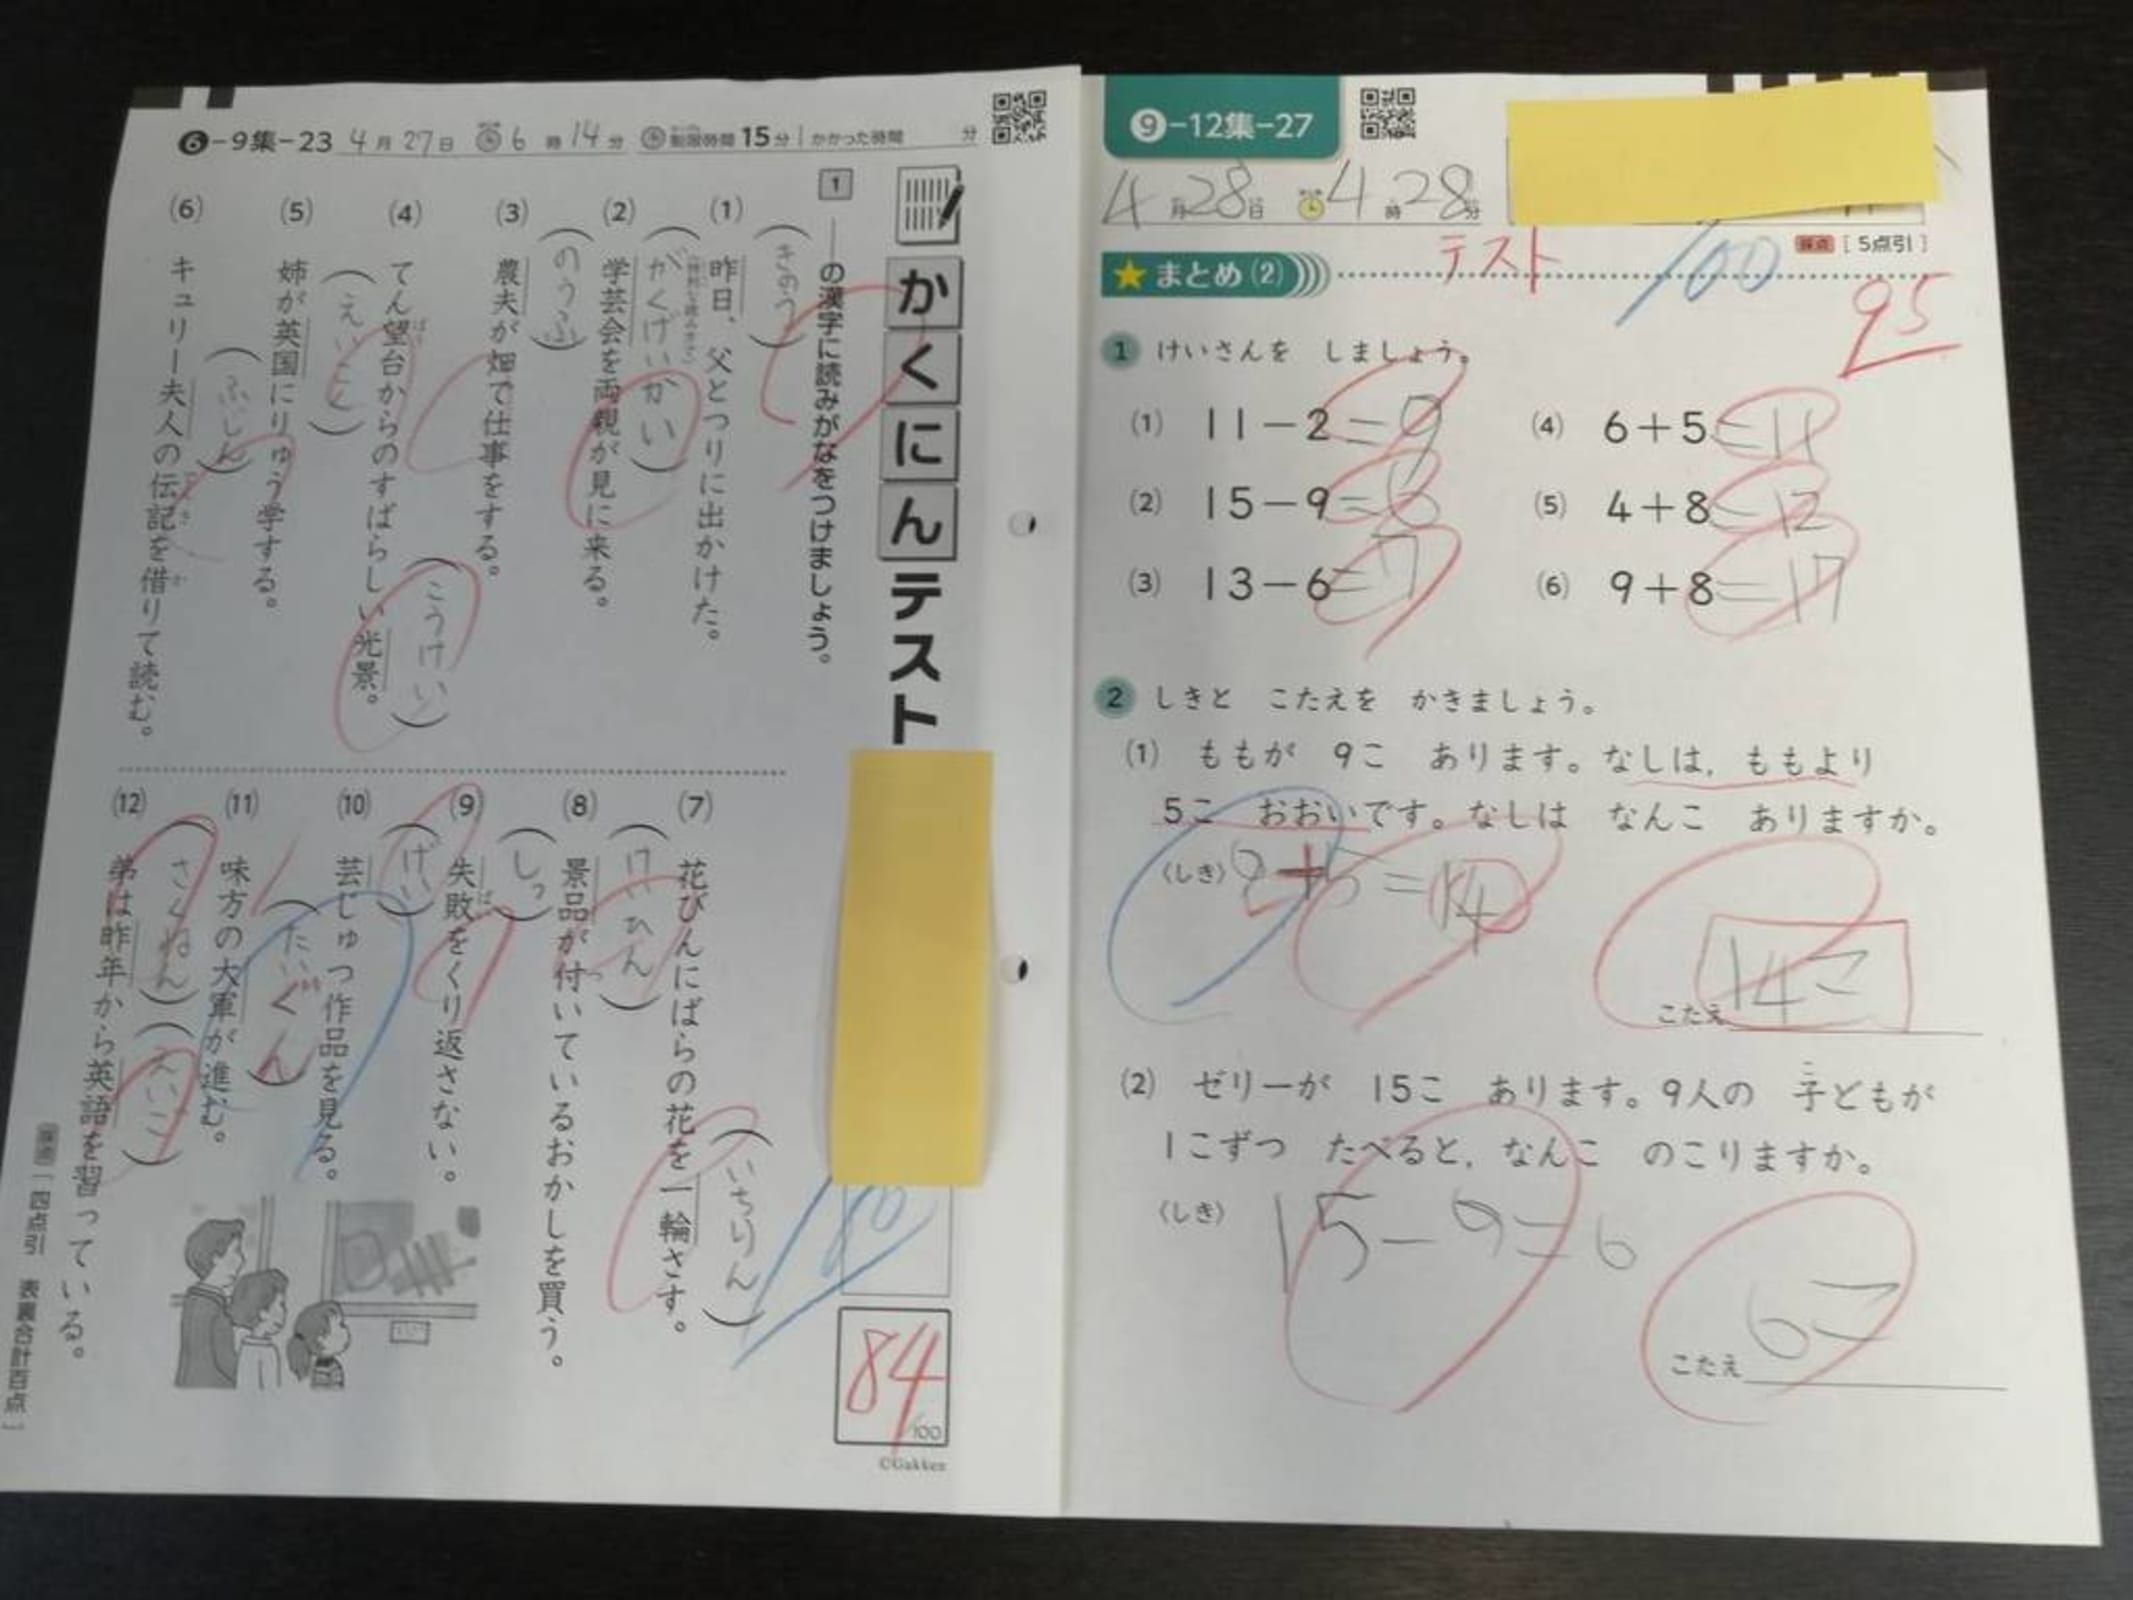 6-9集-23 4月27日 6時14分 制限時間15分 かかった時間 分
かくにんテスト
1 ──の漢字に読みがなをつけましょう。
(1) 昨日、父とつりに出かけた。
(きのう)
(2) 学芸会を両親が見に来る。
(がくげいかい)
(3) 農夫が畑で仕事をする。
(のうふ)
(4) てん望台からのすばらしい光景。
ぼう
(こうけい)
(5) 姉が英国にりゅう学する。
(えいこく)
(6) キュリー夫人の伝記を借りて読む。
でんき
か
(ふじん)
(7) 花びんにばらの花を一輪さす。
(いちりん)
(8) 景品が付いているおかしを買う。
つ
(けいひん)
(9) 失敗をくり返さない。
ぱ
(しっ)
(10) 芸じゅつ作品を見る。
(げい)
(11) 味方の大軍が進む。
(たいぐん)
(12) 弟は昨年から英語を習っている。
(さくねん)
(えいご)
80
84
/100
©Gakken
[一四点引 表裏合計百点]
9-12集-27
4月28日 4時28分
テスト
100
[5点引]
95
★まとめ(2)
1 けいさんを しましょう。
(1) 11-2=9
(2) 15-9=6
(3) 13-6=7
(4) 6+5=11
(5) 4+8=12
(6) 9+8=17
2 しきと こたえを かきましょう。
(1) ももが 9こ あります。なしは,ももより
5こ おおいです。なしは なんこ ありますか。
〈しき〉 9+5=14
こたえ 14こ
(2) ゼリーが 15こ あります。9人の 子どもが
こ
1こずつ たべると,なんこ のこりますか。
〈しき〉 15-9=6
こたえ 6こ